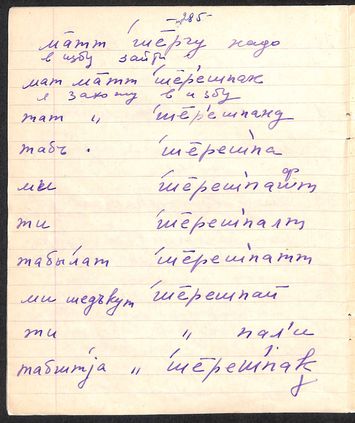 -285-
ма̄тт 'ше̄ргу надо
в избу зайти
мат ма̄тт 'ше̄решпак
я захожу в избу
тат " 'ше̄решпанд
табъ . 'ше̄решпа
мы 'ше̄решпа
ты 'ше̄решпалт
табы́лат 'ше̄решпатт
ми шедъкут 'ше̄решпай
ти " пал'и
табыштја " 'ше̄решпаӄ